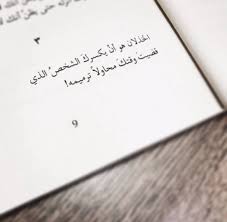 ٣
الخذلان هو أن يكسركَ الشخصُ الذي
قضيتَ وقتكَ محاولاً ترميمه!
9